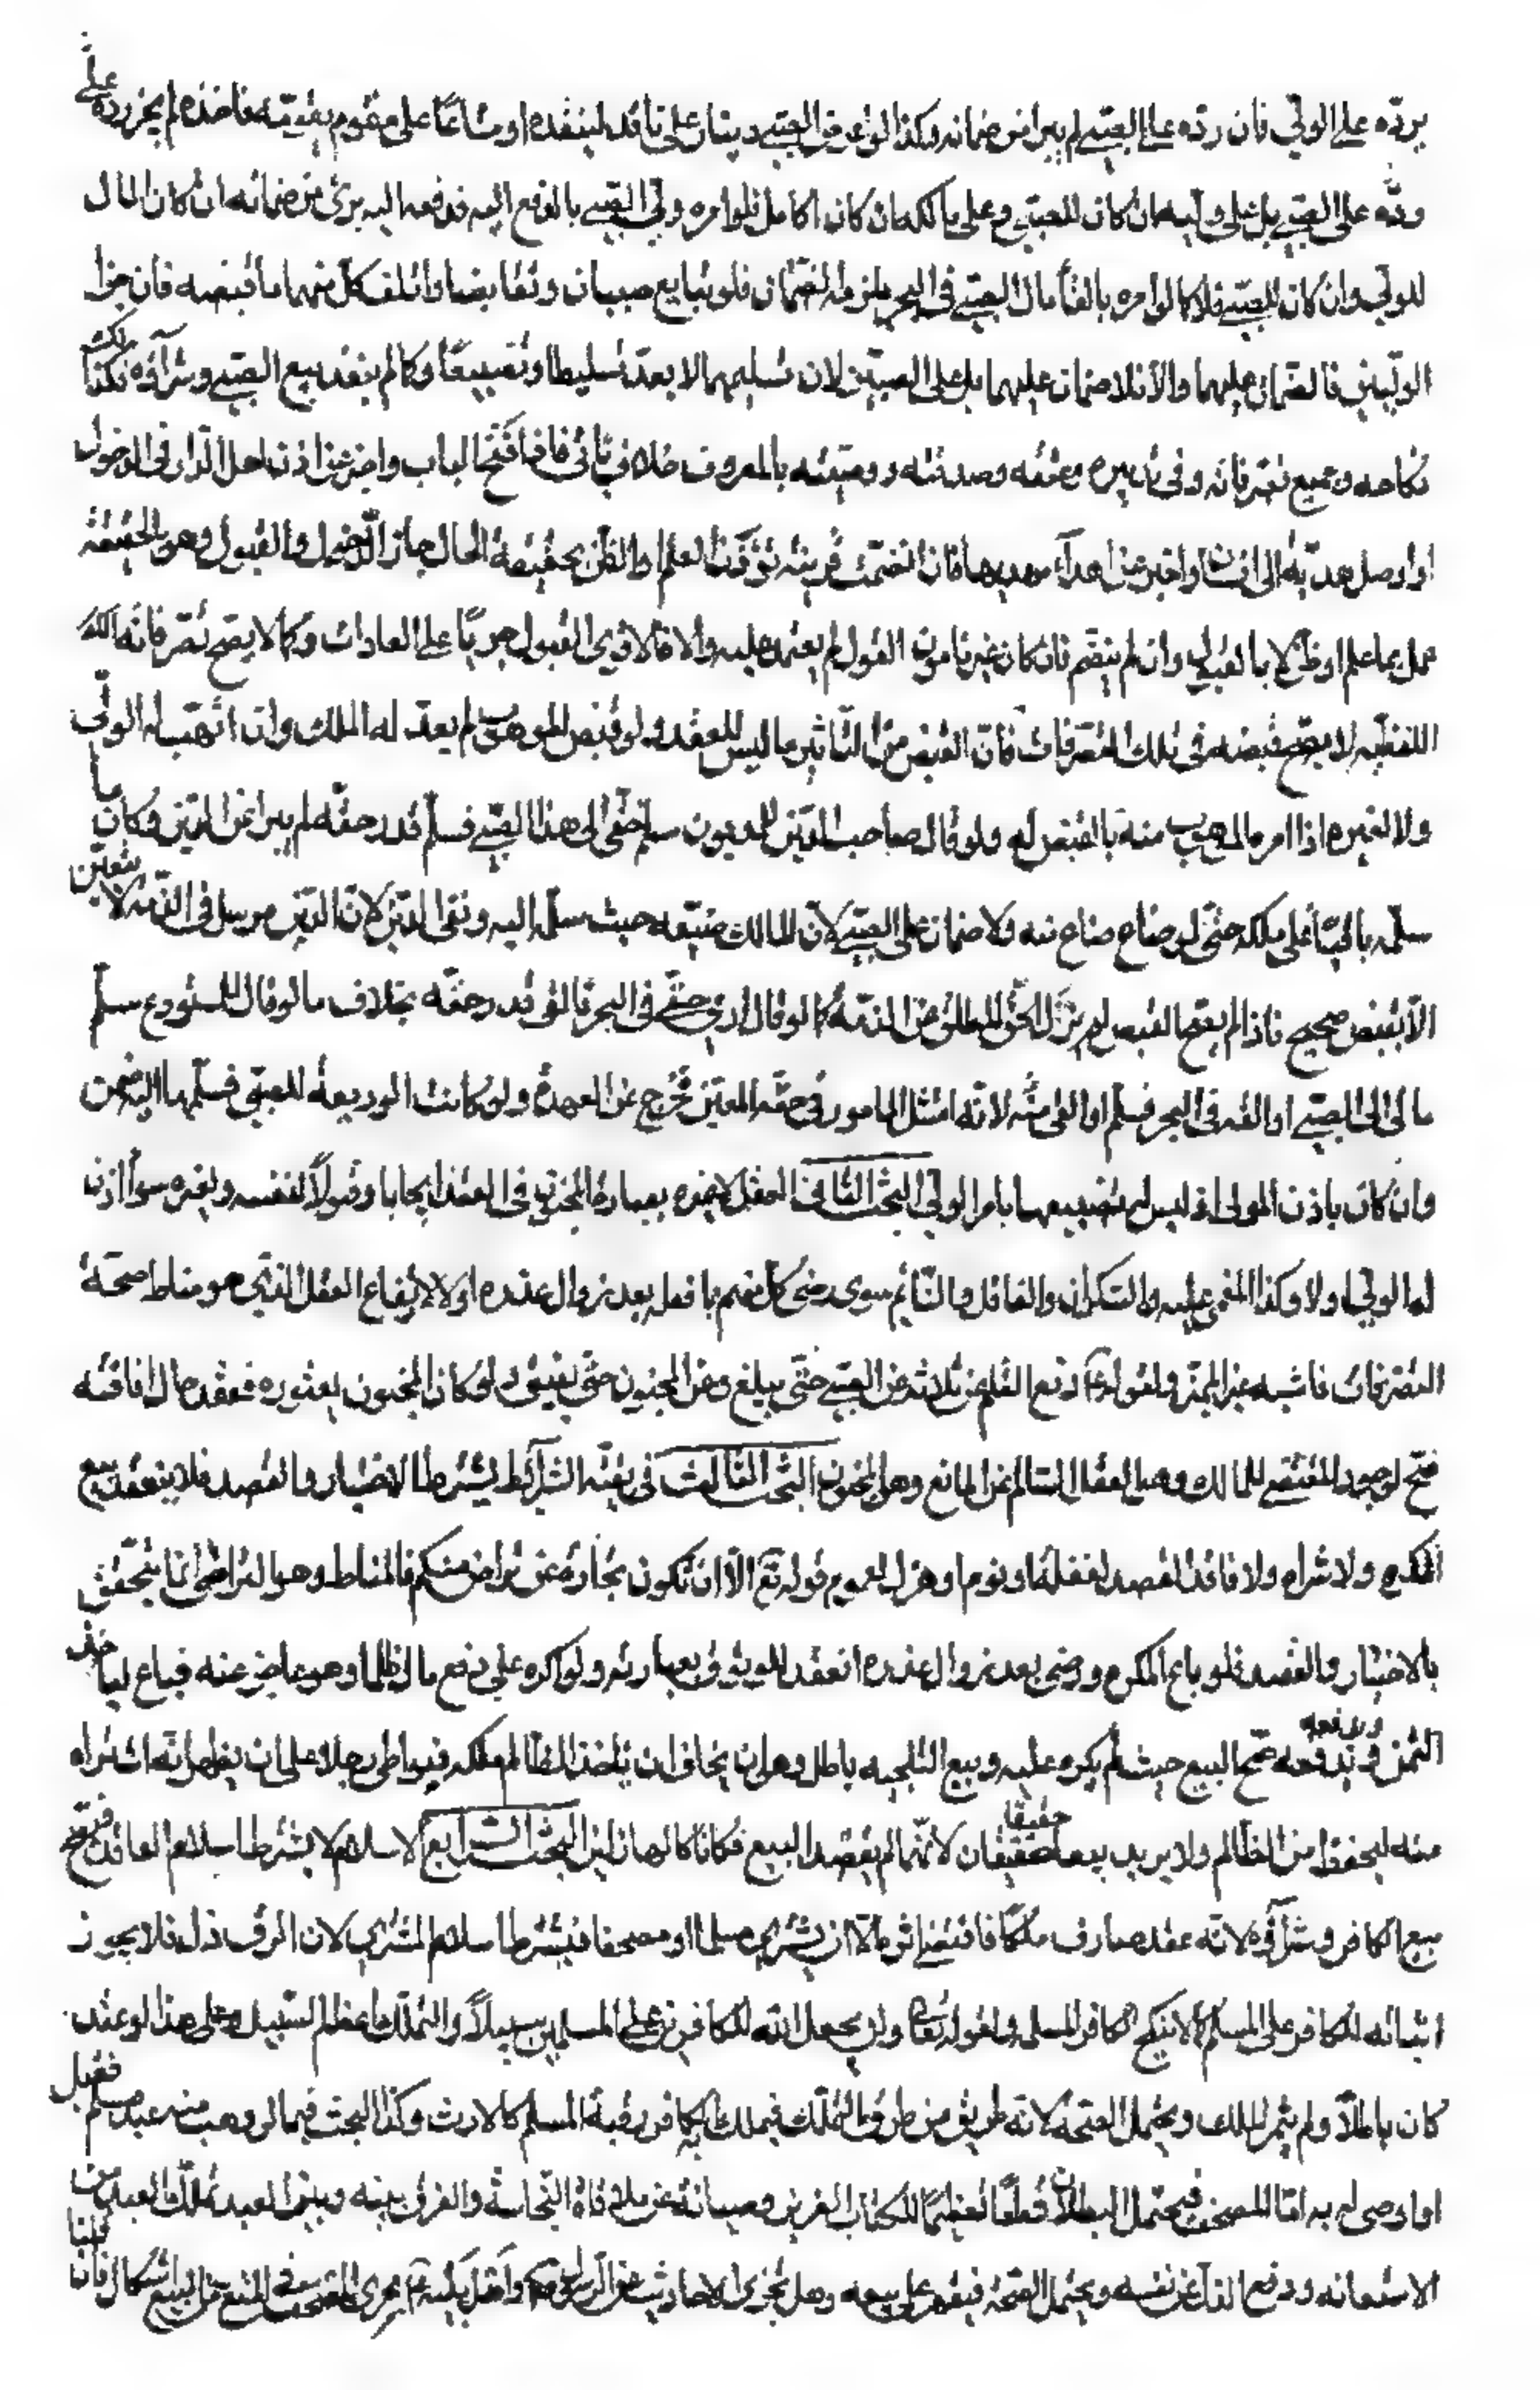 يردّه على الولّي فان ردّه على الصبيّ لم يبرا من ضمانه وكذا لو عرض الصبيّ دينارا على ناقد لينقده او متاعًا على مقوم يقومّه فاخذه لم يجز ردّه على
ردّه على الصبيّ بل على وليّه ان كان للصبيّ وعلى مالكه ان كان الكامل فلو امره وليّ الصبيّ بالدفع اليه فدفعه اليه برئ من ضمانه ان كان المال
للوليّ وان كان للصبيّ فلا كما لو امره بالقاء مال الصبيّ في البحر يلزمه الضّمان فلو تبايع صبيان وتقابضا واتلف كل منهما ما قبضه فان جرا
الوليّين فالضّمان عليهما والّا فلا ضمان عليهما بل على الصبيّين لان تسليمهما لا يعدّ تسليطا وتضييعًا وكما لم ينفذ بيع الصبيّ وشراؤه فكذلك
نكاحه وجميع تصرفاته وفي تدبيره وعتقه وصدقته ووصيّته بالمعروف خلاف ياتي فاذا فتح الباب واخبر عن اذن اهل الدّار في الدخول
او اوصل هديّة الى انسان واخبر عن اهداء مهديها فان انضمّت قرينة تورث العلم او الظن بحقيقة الحال جاز الدّخول والقبول وهو بالحقيقة
عمل بما علم او ظن لا بالقبول وان لم ينضّم فان كان غير مامون القول لم يعتمد عليه والا فالاقوى القبول جريًا على العادات وكما لا يصح تصرفاته
اللفظيّه لا يصّح قبضه في تلك التصرفات فانّ القبض من التّاثير ما ليس للعقد ولو قبض الموهوب لم يعدّ له الملك وان اتّهب له الوليّ
ولا لغيره اذا امره الموهوب منه بالقبض له ولو قال صاحب الدّين للمديون سلم حقّي الى هذا الصبيّ فسلّم قدر حقّه لم يبرا عن الدّين وكان ما
سلّمه باقيًا على ملكه حتّى لو ضاع ضاع منه ولا ضمان على الصبيّ لانّ المالك ضيّعه حيث سلّم اليه وبقى الدّين لانّ الدّين مرسل في الذّمّة لا يتعيّن
الّا بقبض صحيح فاذا لم يصّح القبض لم يزل الحقّ المطلق عن الذمّة كما لو قال ارم حقّي في البحر فالقى قدر حقّه بخلاف ما لو قال للمستودع سلّم
مالي الى الصبيّ او القه في البحر فسلّم او القى منّه لانّه امتثل المامور في حقّه المعيّن فخرج عن العهدة ولو كانت الوديعة للصبيّ فسلّمها اليه ضمن
وان كان باذن المولى اذ ليس له تضييعها بامر الوليّ البحث الثّاني العقل لا عبرة بعبارة المجنون في العقد ايجابا وقبولاً لنفسه ولغيره سواء اذن
له الوليّ او لا وكذا المغمى عليه والسّكران والغافل والنّائم سوى رضى كلّ منهم بما فعله بعد زوال عذره او لا لارتفاع العقل الّذي هو مناط صحّة
التصّرفات فاشبه غير المميّز ولقوله ع رفع القلم عن ثلاثة عن الصبيّ حتّى يبلغ وعن المجنون حتّى يفيق ولو كان المجنون يعتوره فعقد حال افاقته
صّح لوجود المقتضي للمالك وهو العقل السّالم عن المانع وهو الجنون البحث الثّالث في بقيّة الشّرائط يشترط الاختيار والقصد فلا ينعقد بيع
المكره ولا شراه ولا فاقد القصد لغفلة او نوم او هزل لعموم قوله تع الّا ان تكون تجارة عن تراض منكم فالمناط وهو التراضي انّما يتحقّق
بالاختيار والقصد فلو باع المكره ورضى بعد زوال عذره انعقد للوثوق بعبارته ولو اكره على دفع مال ظلما وهو عاجز عنه فباع لياخذ
الثمن ويدفعه صّح البيع حيث لم يكره عليه وبيع التلجيه باطل وهو ان يخاف ان ياخذ الظّالم ملكه فيواطى رجلا على ان يظهر انّه اشتراه
منه ليحفظ من الظّالم ولا يريد بيعا حقيقيا لانّهما لم يقصدا البيع فكانا كالهازلين البحث الرّابع الاسلام لا يشترط اسلام العاقد فيصّح
بيع الكافر وشراؤه لانّه عقد صادف ملكًا فاقتضى اثره الّا ان يشتري مسلما او مصحفا فيشترط اسلام المشتري لان الرق ذل فلا يجوز
اثباته للكافر على المسلم كما لا ينكح الكافر المسلمة ولقوله تعالى ولن يجعل الله للكافرين على المسلمين سبيلاً والتملّك اعظم السّبيل وعلى هذا لو عقد
كان باطلاً ولم يثمر الملك ويحتمل الصّحة لانّه طريق من طرق التملّك فيملك به الكافر رقبة المسلم كالارث وكذا البحث فيما لو وهب منه عبد مسلم فقبل
او اوصى له به امّا المصحف فيحتمل البطلان قطعًا تعظيمًا للكتاب العزيز وصيانة عن ملاقاة النّجاسة والفرق بينه وبين العبد تملّك العبد من
الاستعانه ودفع الذّل عن نفسه ويحتمل الصّحّة فيقهر على بيعه وهل تجري الاحاديث عن الرسول ص واهل بيته ع مجرى المصحف في المنع من البيع اشكال فان قلنا